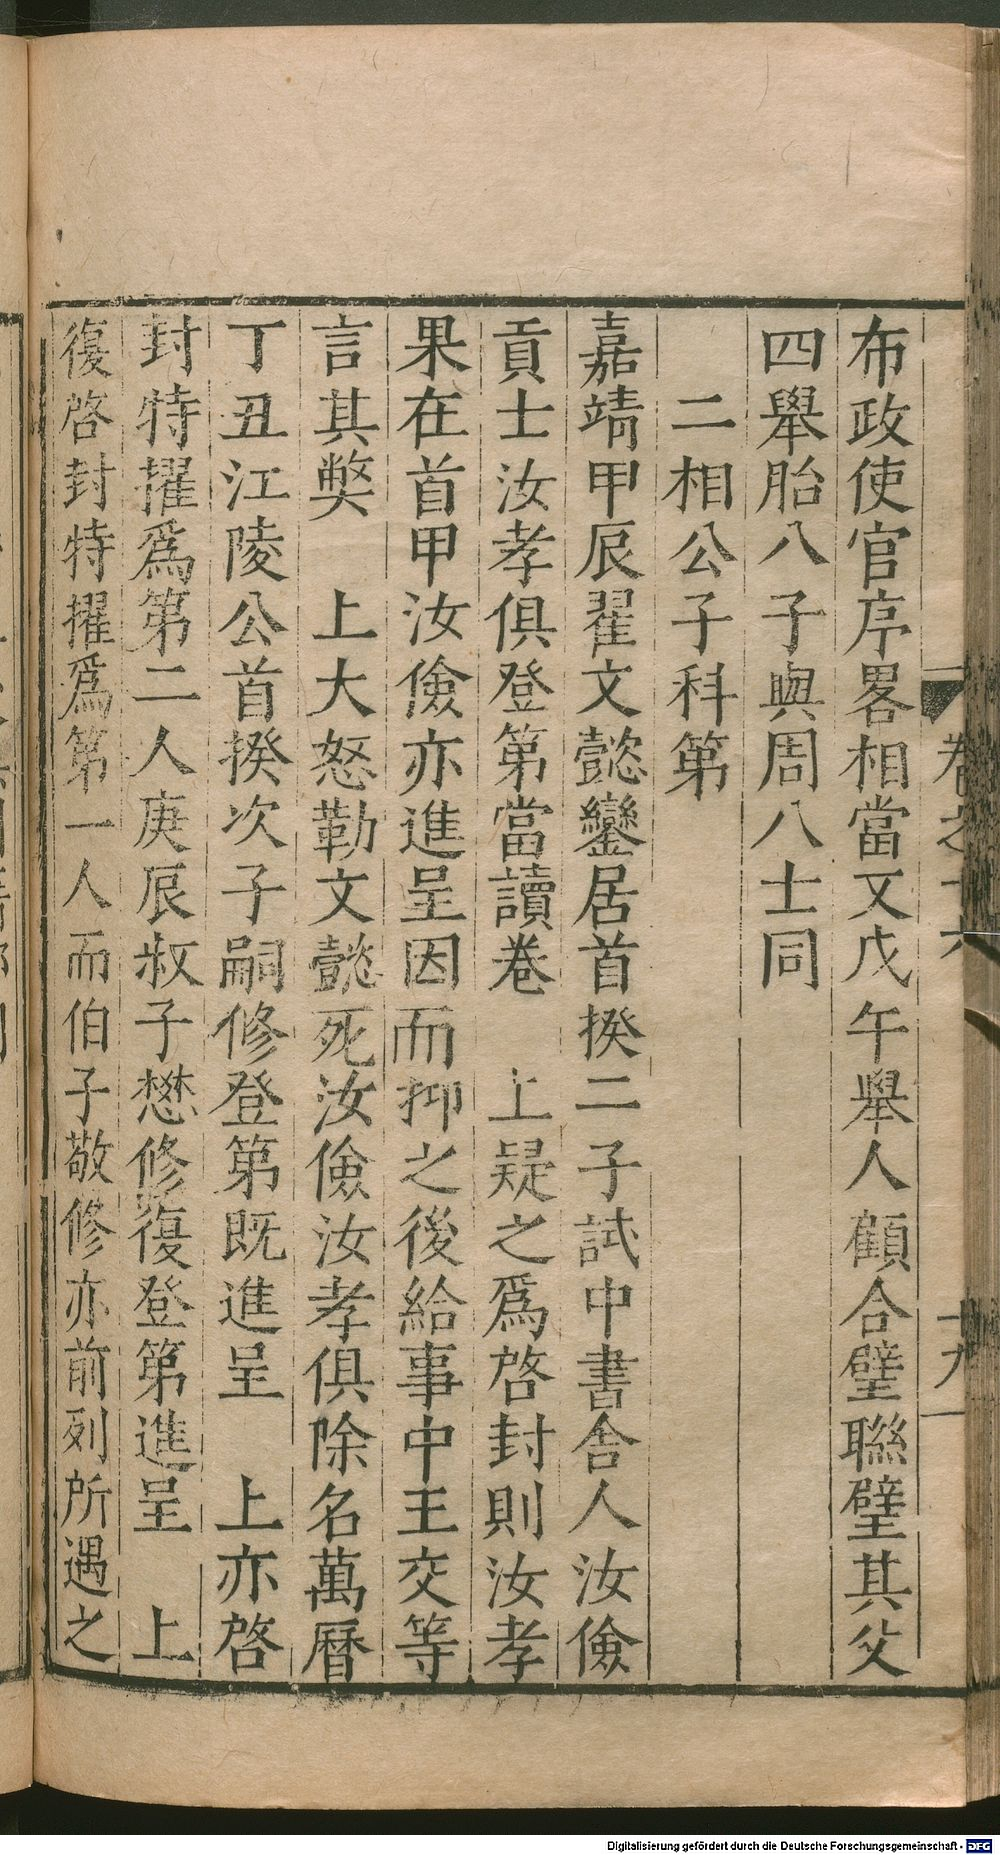 布政使官序畧相當又戊午舉人顧合璧聯璧其父
四舉胎八子與周八士同
二相公子科第
嘉靖甲辰翟文懿鑾居首揆二子試中書舍人汝儉
貢士汝孝俱登第當讀卷　上疑之爲啓封則汝孝
果在首甲汝儉亦進呈因而抑之後給事中王交等
言其弊　上大怒勒文懿死汝儉汝孝俱除名萬曆
丁丑江陵公首揆次子嗣修登第既進呈　上亦啓
封特擢爲第二人庚辰叔子懋修復登第進呈　上
復啓封特擢爲第一人而伯子敬修亦前列所遇之
卷之十六
十九
Digitalisierung gefördert durch die Deutsche Forschungsgemeinschaft - DFG